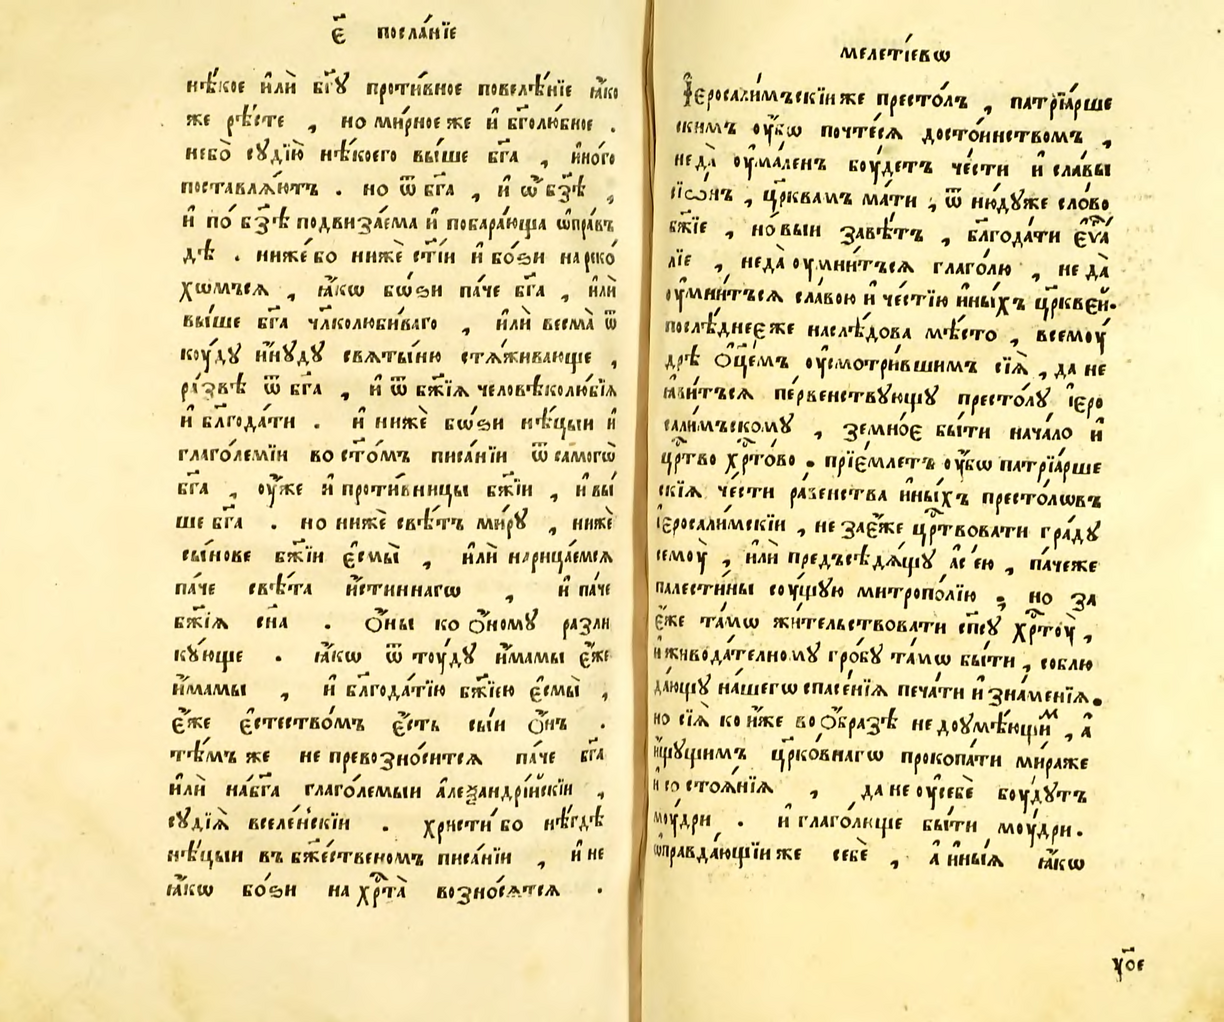 є҃ посла́нїе
нѣ́кое и҆лѝ бг҃ꙋ проти́вное повелѣ́нїе ꙗ҆́ко
же рѣ́сте , но ми́рное же и҆ бг҃олю́бное .
небо̀ сꙋдїю̀ нѣ́коего вы́ше бг҃а , и҆но́го
поставлѧ́ютъ . но ѿ бг҃а , и҆ ѡ҆ бз҃ѣ ,
и҆ по́ бз҃ѣ подвиза́ема и҆ побара́юща ѡ҆пра́въ
дѣ . ниже́ бо нижѐ ст҃і́и и҆ бо́ѕи нареко́
хомъсѧ , ꙗ҆́кѡ бѡ́ѕи па́че бг҃а , и҆лѝ
вы́ше бг҃а чл҃колюби́ваго , и҆лѝ весма̀ ѿ
коу́дꙋ и҆нꙋ́дꙋ свѧты́ню стѧ́живающе ,
ра́звѣ ѿ бг҃а , и҆ ѿ бж҃їѧ человѣколю́бїѧ
и҆ благода́ти . и҆ нижѐ бѡ́ѕи нѣ́цыи и҆
глаго́лемїи во ст҃о́мъ писа́нїи ѿ самогѡ̀
бг҃а , оу҆́же и҆ проти́вницы бж҃їи , и҆ вы́
ше бг҃а . но нижѐ свѣ́тъ ми́рꙋ , нижѐ
сы́нове бж҃їи є҆смы̀ , и҆лѝ нарица́емсѧ
па́че свѣ́та и҆́стиннагѡ , и҆ па́че
бж҃їѧ сн҃а . ѻ҆́ны ко ѻ҆́номꙋ разли
кꙋ́юще . ꙗ҆́кѡ ѿ тоу́дꙋ и҆́мамы є҆́же
и҆́мамы , и҆ благода́тїю бж҃їею є҆смы̀ ,
є҆́же є҆стество́мъ є҆́сть сы́и ѻ҆́нъ .
тѣ́мъ же не превозно́ситсѧ па́че бг҃а
и҆лѝ на́бг҃а глаго́лемыи а҆леѯандрі́йскїи ,
сꙋдїѧ̀ вселе́нскїи . христи́ бо нѣ́гдѣ
нѣ́цыи въ бж҃е́ственомъ писа́нїи , и҆ не
ꙗ҆́кѡ бо́ѕи на хрⷭ҇та̀ возно́сѧтсѧ .
меле́тїевѡ
І҆еросали́мъскїи же престо́лъ , патрїа́рше
скимъ оу҆́бѡ почте́сѧ досто́инствомъ ,
не да̀ оу҆ма́ленъ боу́детъ че́сти и҆ сла́вы
сїѡ́нъ , цр҃квамъ ма́ти , ѿ ню́дꙋже сло́во
бж҃їе , но́выи завѣ́тъ , благода́ти є҆ѵⷢ҇а́
лїе , не да̀ оу҆мни́тъсѧ глаго́лю , не да̀
оу҆мни́тъсѧ сла́вою и҆ че́стїю и҆ны́хъ цр҃кве́й .
послѣ́днеє же наслѣ́дова мѣ́сто , всемоу́
дрѣ ѻ҆ц҃е́мъ оу҆смотри́вшимъ сїѧ̀ , да не
ꙗ҆ви́тъсѧ пе́рвенствꙋющꙋ престо́лꙋ і҆еро
сали́мъскомꙋ , земно́є бы́ти нача́ло и҆
црⷭ҇тво хрⷭ҇то́во . прїе́млетъ оу҆́бѡ патрїа́рше
скїѧ че́сти ра́венства и҆ны́хъ престо́лѡвъ
і҆еросали́мскїи , не за є҆́же црⷭ҇твовати гра́дꙋ
семоу̀ , и҆лѝ предъсѣдѧ́щꙋ а҆сі́ею , па́чеже
палести́ны соу́щꙋю митропо́лїю ; но за
є҆́же та́мѡ жи́тельствовати сп҃сꙋ̀ хрⷭ҇тоу̀ ,
и҆ живода́телномꙋ гро́бꙋ та́мѡ бы́ти , соблю
да́ющꙋ на́шегѡ спасе́нїѧ печа́ти и҆ зна́менїѧ .
но сїѧ̀ ко и҆́же во ѻ҆́бразѣ не доумѣ́ющиⷨ , а҆
и҆́щꙋщимъ цр҃ко́внагѡ прокопа́ти ми́ра же
и҆ состоѧ́нїѧ , да не оу҆ себѐ боу́дꙋтъ
моу́дри . и҆ глаго́люще бы́ти моу́дри .
ѡ҆правда́ющїи же себѐ , а҆ и҆ны́ѧ ꙗ҆́кѡ
у҃ое